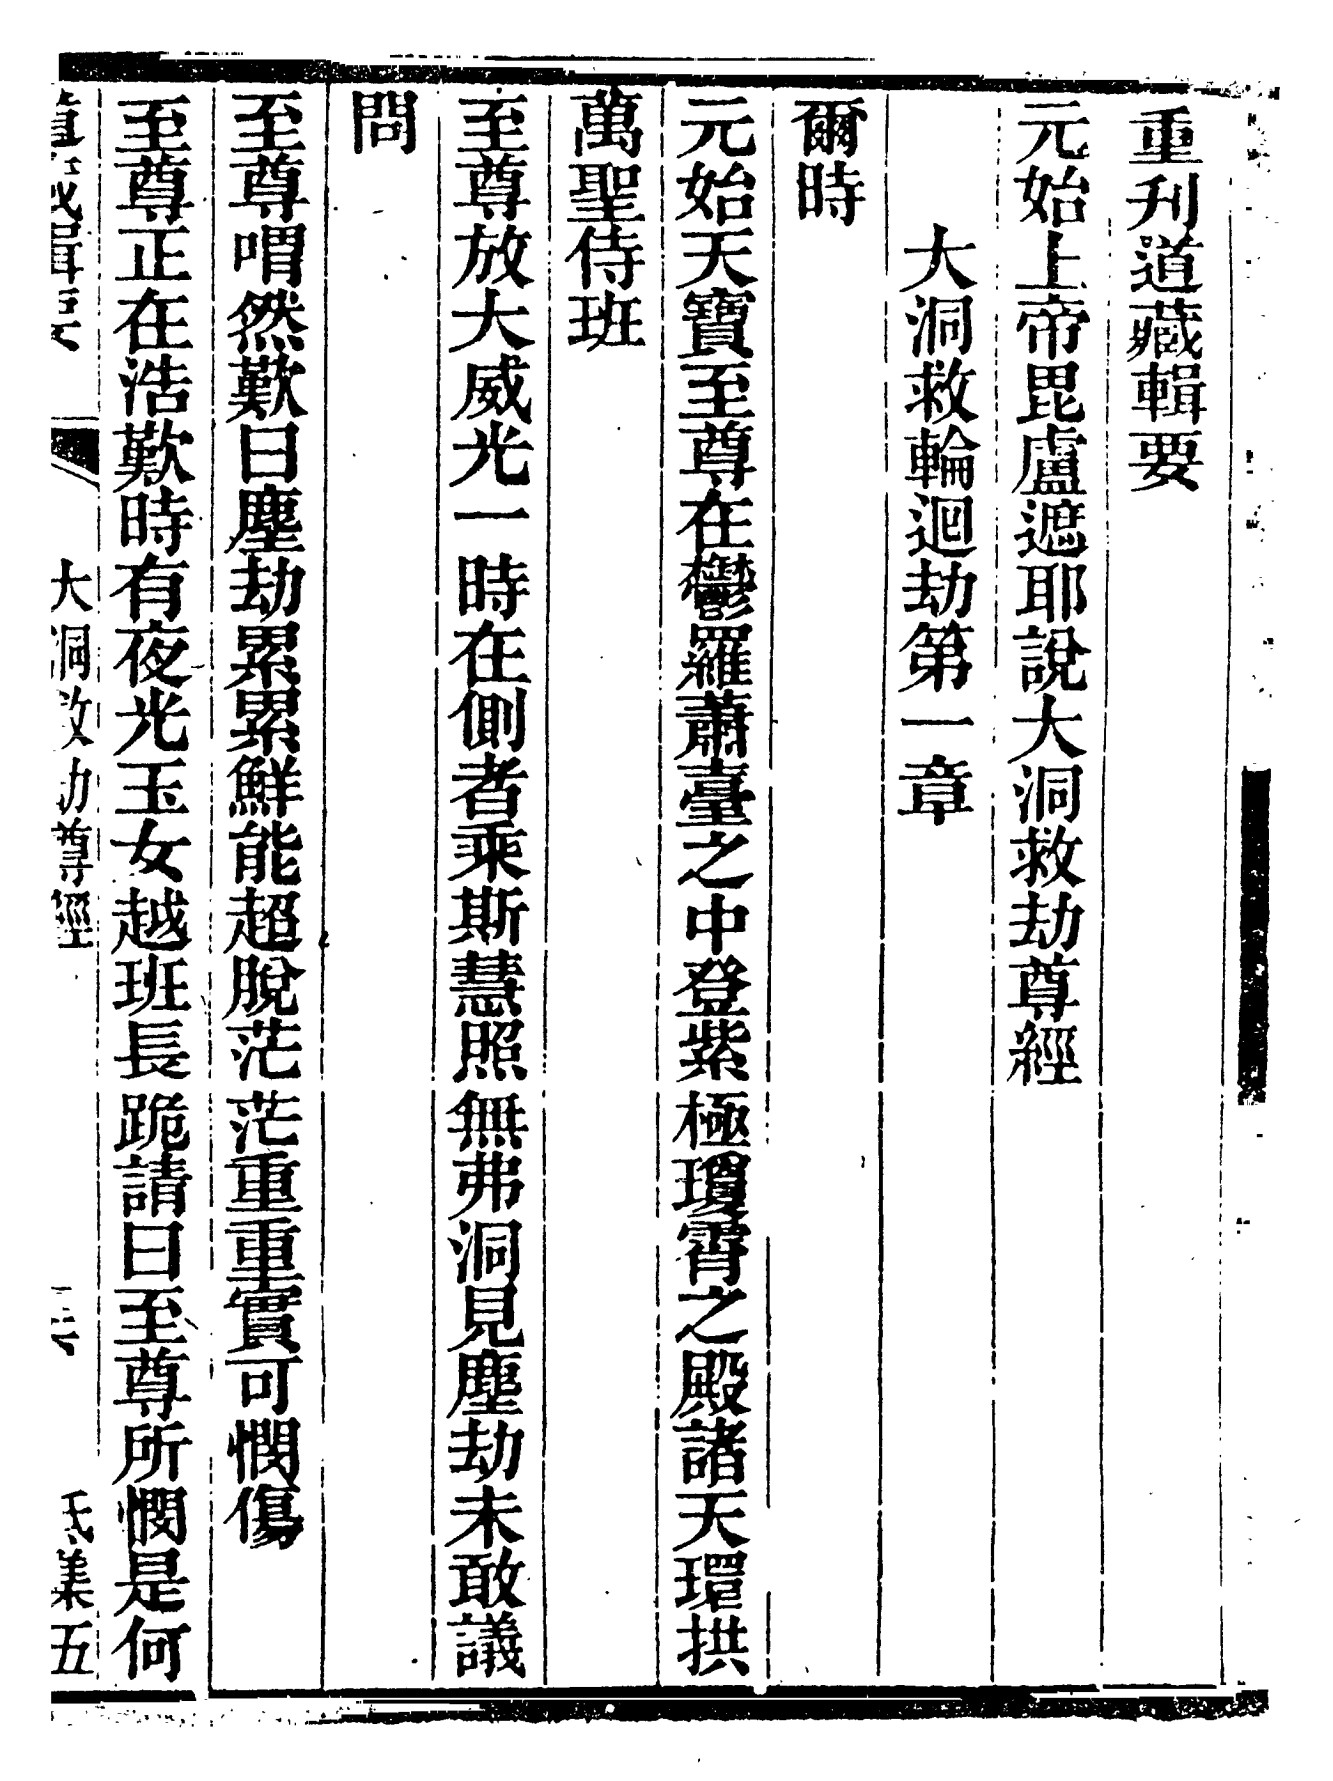 重刋道藏輯要
元始上帝毘盧遮耶說大洞救劫尊經
大洞救輪迴劫第一章
爾時
元始天寶至尊在鬱羅蕭臺之中登紫極瓊霄之殿諸天環拱
萬聖侍班
至尊放大威光一時在側者乘斯慧照無弗洞見塵劫未敢議
問
至尊喟然歎曰塵劫累累鮮能超脫茫茫重重實可憫傷
至尊正在浩歎時有夜光玉女越班長跪請曰至尊所憫是何
道藏輯要 大洞救劫尊經 氐集五